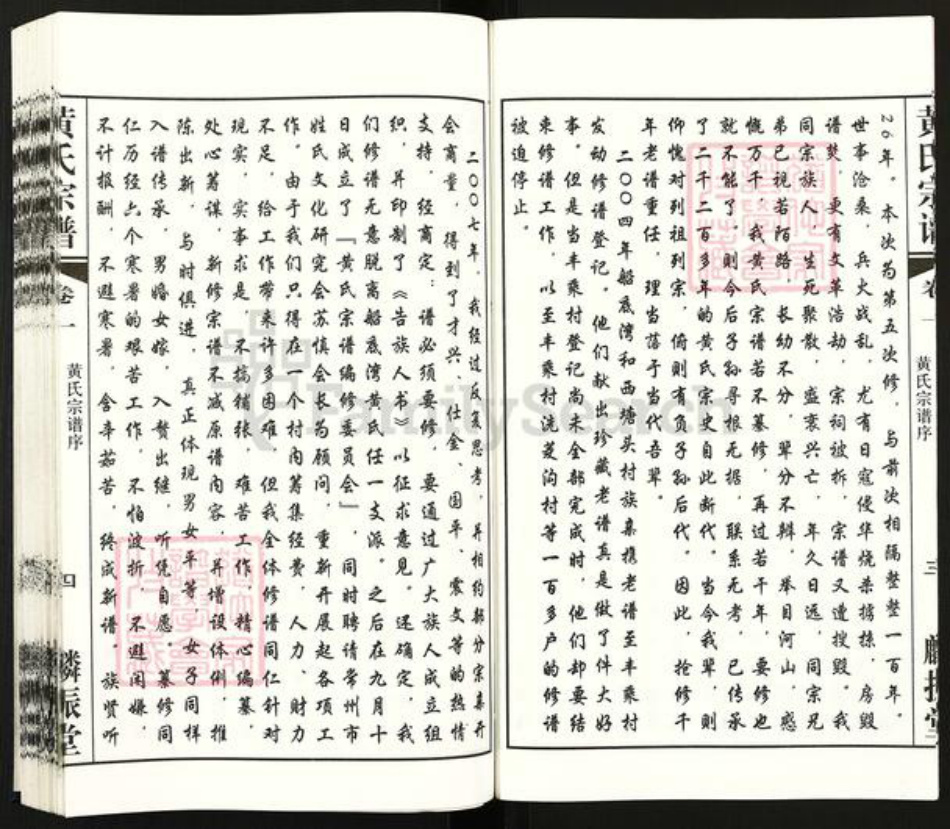 黄氏宗谱 卷一 黄氏宗谱序 三 麟振堂
26年。本次为第五次修，与前次相隔整整一百年。
世事沧桑，兵火战乱，尤有日寇侵华烧杀掳掠，房毁
谱焚，更有文革浩劫，宗祠被拆，宗谱又遭搜毁。我
同宗族人，生死聚散，盛衰兴亡，年久日远，同宗兄
弟已视若陌路，长幼不分，辈分不辩，举目河山，感
慨万千，我黄氏宗谱若不纂修，再过若干年，要修也
就不能了，则今后子孙寻根无据，联系无考，已传承
了二千二百多年的黄氏宗史自此断代。当今我辈，则
仰愧对列祖列宗，俯则有负子孙后代。因此，抢修千
年老谱重任，理当落于当代吾辈。
二〇〇四年船底湾和西塘头村族亲携老谱至丰乘村
发动修谱登记。他们献出珍藏老谱真是做了件大好
事。但是当丰乘村登记尚未全部完成时，他们却要结
束修谱工作，以至丰乘村洗菱沟村等一百多户的修谱
被迫停止。
二〇〇七年，我经过反复思考，并相约部分宗亲开
会商量，得到了才兴、仕金、国平、震文等的热情
支持，经商定：谱必须要修，要通过广大族人成立组
织，并印制了《告族人书》，以征求意见。还确定，我
们修谱无意脱离船底湾黄氏任一支派。之后在九月十
日成立了「黄氏宗谱编修委员会」，同时聘请常州市
姓氏文化研究会苏慎会长为顾问，重新开展起各项工
作。由于我们只得在一个村内筹集经费，人力、财力
不足，给工作带来许多困难，但我全体修谱同仁针对
现实，实事求是，不搞铺张，难苦工作，精心编纂，
处心筹谋，新修宗谱不减原谱内容，再增设体例，推
陈出新，与时俱进，真正体现男女平等，女子同样
入谱传承，男婚女嫁，入赘出继，听凭自愿。纂修同
仁历经六个寒暑的艰苦工作，不怕波折，不避闲嫌，
不计报酬，不避寒暑，含辛茹苦，终成新谱，族贤听
黄氏宗谱 卷一 黄氏宗谱序 四 麟振堂
FamilySearch